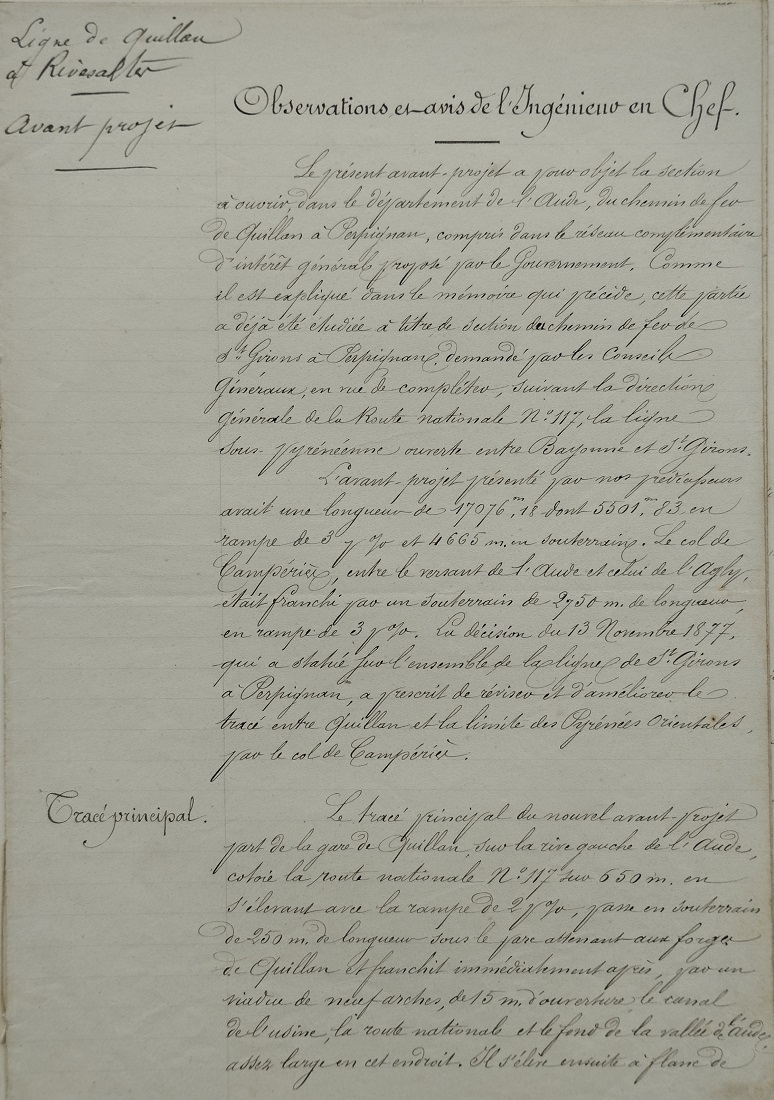 Ligne de Quillan
à Rivesaltes
Avant projet
Observations et avis de l'Ingénieur en Chef.
Le présent avant-projet a pour objet la section
à ouvrir, dans le département de l'Aude, du chemin de fer
de Quillan à Perpignan, compris dans le réseau complémentaire
d'intérêt général proposé par le Gouvernement. Comme
il est expliqué dans le mémoire qui précède, cette partie
a déjà été étudiée à titre de section du chemin de fer de
St Girons à Perpignan, demandé par les Conseils
Généraux, en vue de compléter, suivant la direction
générale de la Route nationale No 117, la ligne
sous-pyrénéenne ouverte entre Bayonne et St Girons.
L'avant-projet présenté par nos prédécesseurs
avait une longueur de 17076m,18 dont 5501m,83 en
rampe de 3 p % et 4665 m. en souterrain. Le col de
Campérièx, entre le versant de l'Aude et celui de l'Agly,
était franchi par un souterrain de 2750 m. de longueur,
en rampe de 3 p %. La décision du 13 Novembre 1877,
qui a statué sur l'ensemble de la ligne de St Girons
à Perpignan, a prescrit de réviser et d'améliorer le
tracé entre Quillan et la limite des Pyrénées Orientales,
par le col de Campérièx.
Tracé principal.
Le tracé principal du nouvel avant-projet
part de la gare de Quillan, sur la rive gauche de l'Aude,
cotoie la route nationale No 117 sur 650 m. en
s'élevant avec la rampe de 2 p %, passe en souterrain
de 250 m. de longueur sous le parc attenant aux forges
de Quillan et franchit immédiatement après, par un
viaduc de neuf arches, de 15 m. d'ouverture le canal
de l'usine, la route nationale et le fond de la vallée de l'Aude,
assez large en cet endroit. Il s'élève ensuite à flanc de